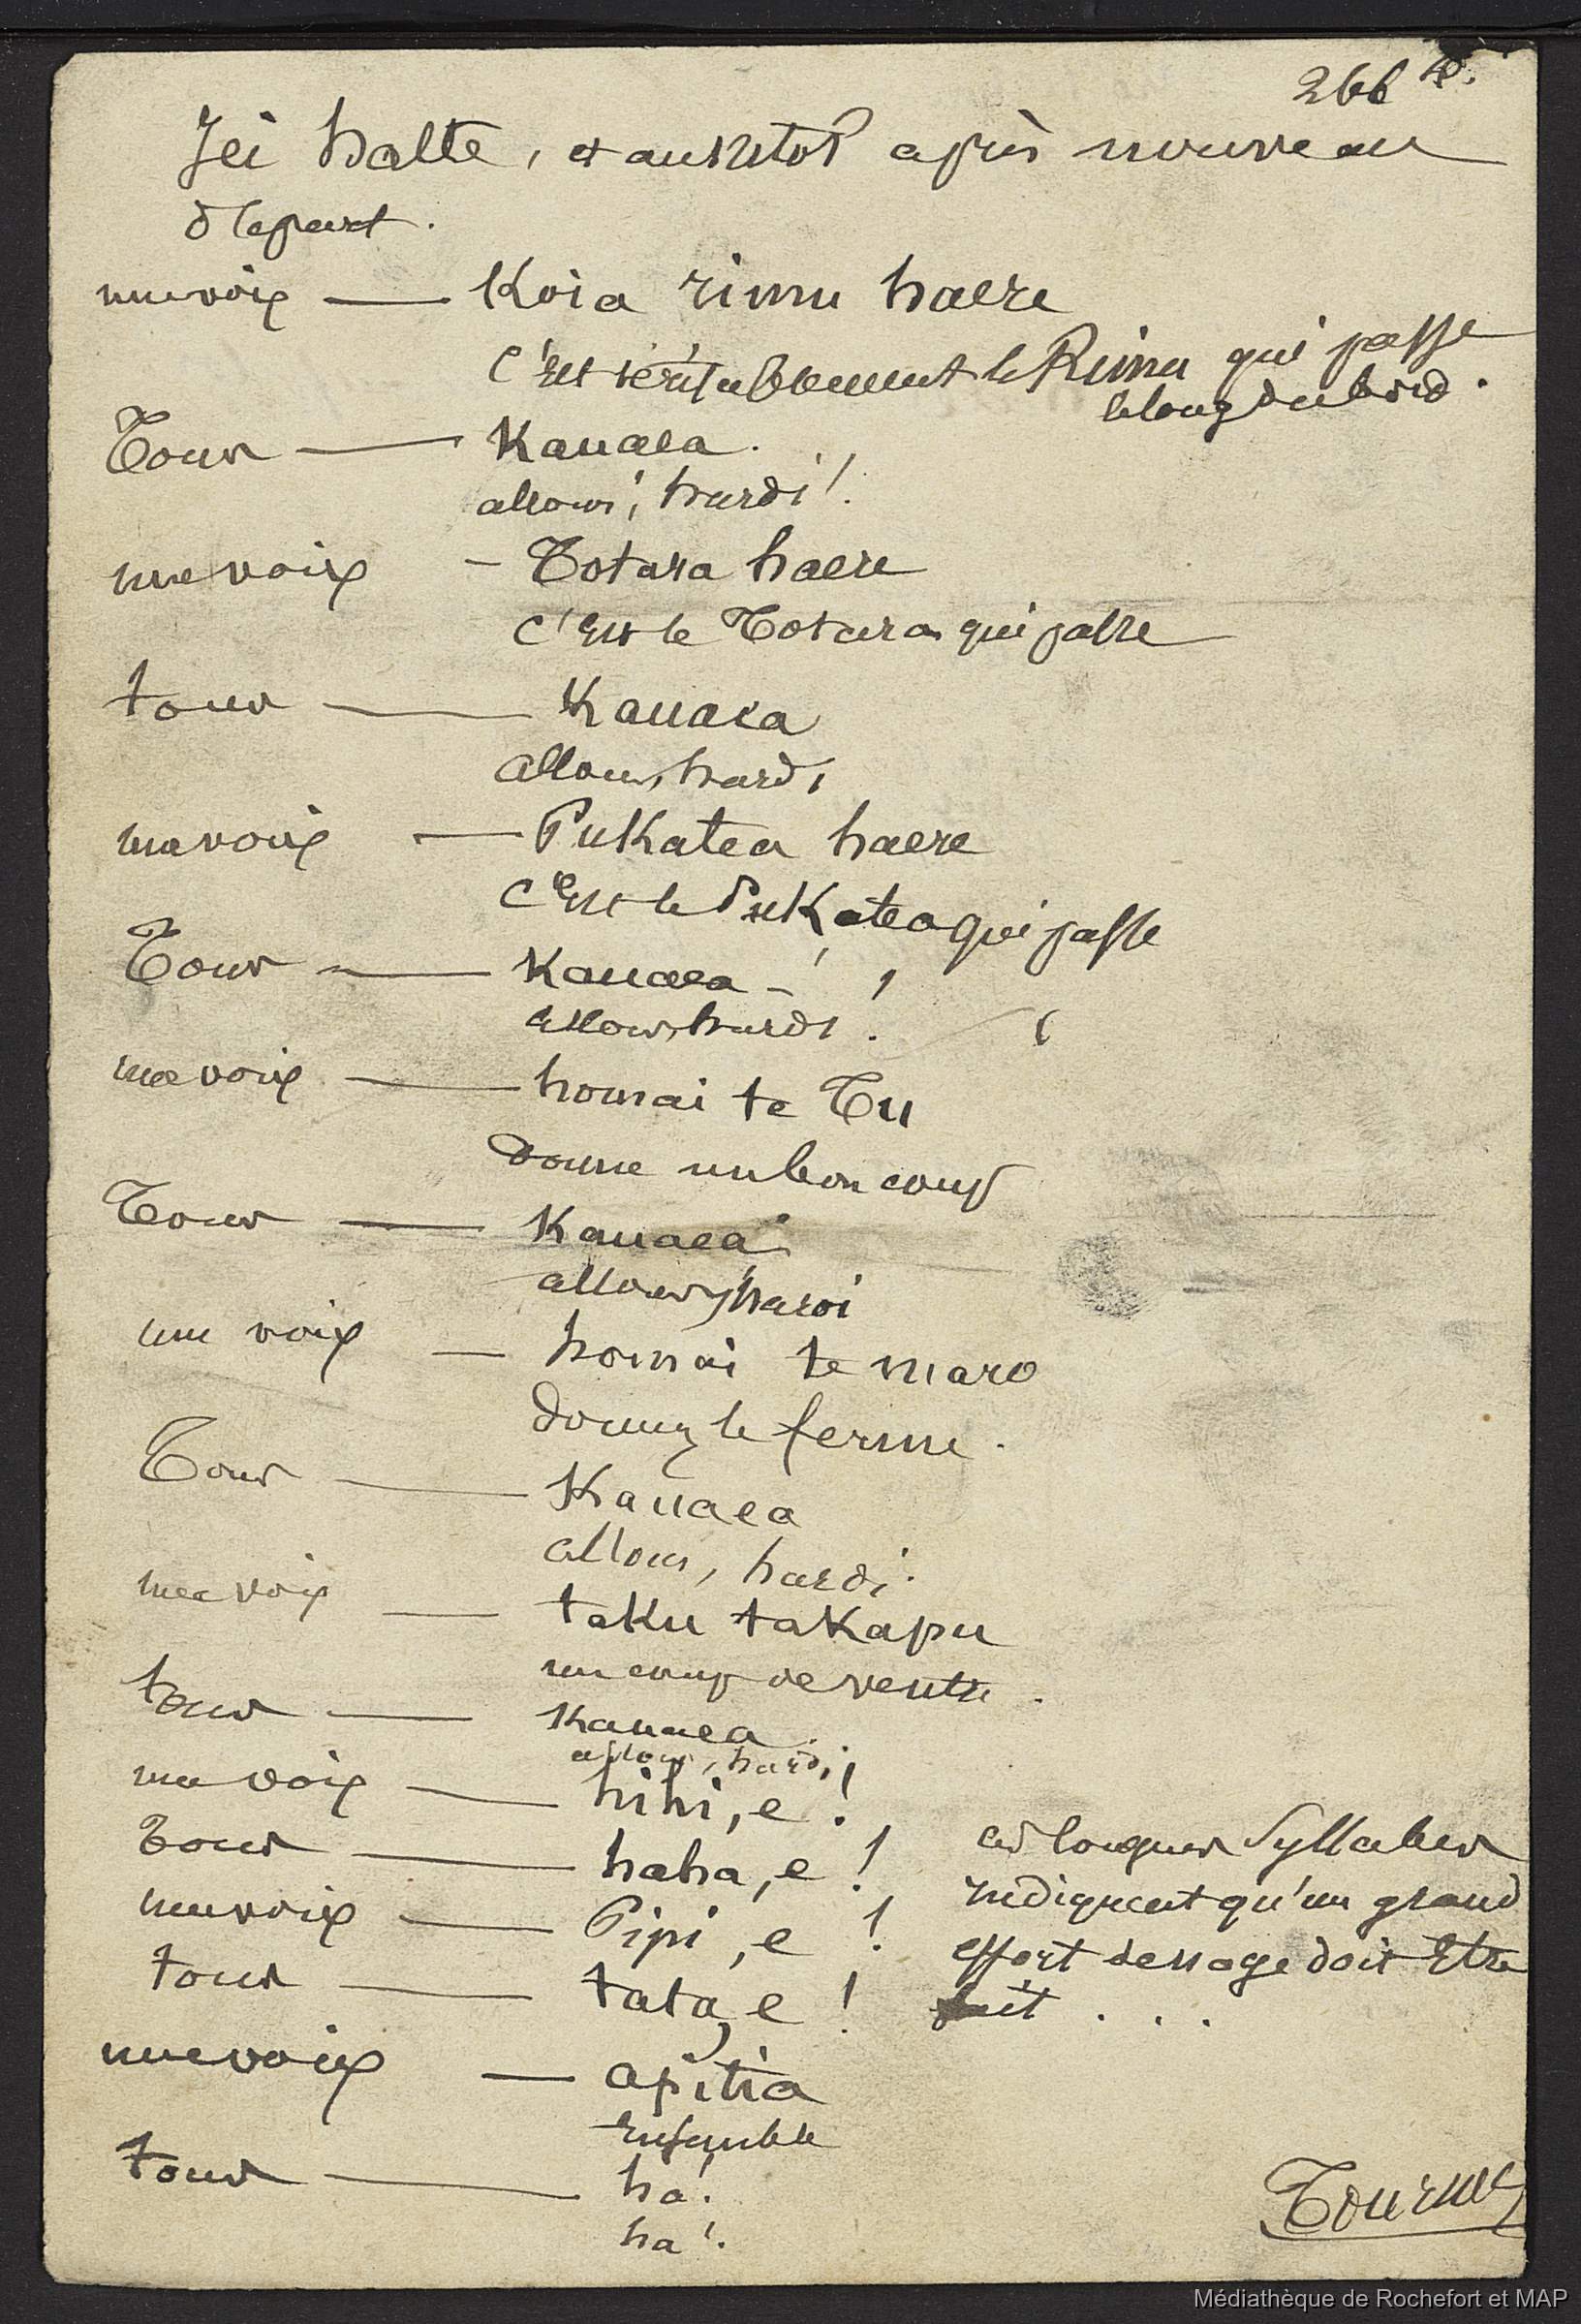 266 4°.
Ici halte, et aussitot après nouveau
départ.
une voix — Koia rimu haere
c'est véritablement le Rimu qui passe
le long du bord.
Tous — Kauaea.
allons, hardi!
une voix — Totara haere
c'est le Totara qui passe
tous — Kauaea
allons, hardi
une voix — Pukatea haere
c'est le Pukatea qui passe
Tous — Kauaea - !
allons, hardi !
une voix — homai te Tu
donne un bon coup
Tous — Kauaea
allons, hardi
une voix — homai te maro
donnez le ferme.
Tous — Kauaea
allons, hardi.
une voix — taku takapu
un coup de ventre.
tous — Kauaea.
allons, hardi!
une voix — hihi, e !
Tous — haha, e !
une voix — Pipi, e !
tous — tata, e !
ces longues syllabes
indiquent qu'un grand
effort de nage doit être
fait . . .
une voix — apitia
ensemble
tous — ha!
ha!
Tournez
Médiathèque de Rochefort et MAP